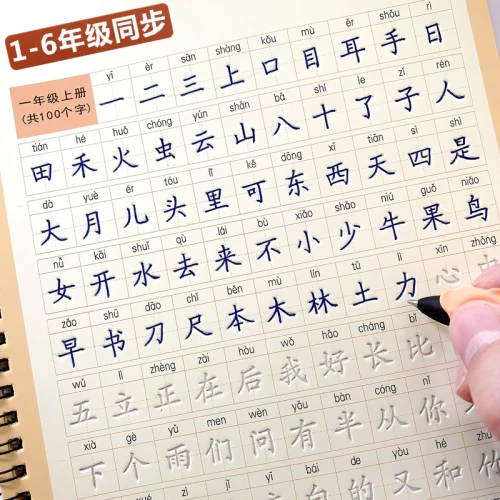 1-6年级同步
yī èr sān shàng kǒu mù ěr shǒu rì
一年级上册 一 二 三 上 口 目 耳 手 日
(共100个字)
tián hé huǒ chóng yún shān bā shí le zǐ rén
田 禾 火 虫 云 山 八 十 了 子 人
dà yuè ér tóu lǐ kě dōng xī tiān sì shì
大 月 儿 头 里 可 东 西 天 四 是
nǚ kāi shuǐ qù lái bù xiǎo shǎo niú guǒ niǎo
女 开 水 去 来 不 小 少 牛 果 鸟
zǎo shū dāo chǐ běn mù lín tǔ lì xīn zhōng
早 书 刀 尺 本 木 林 土 力 心
wǔ lì zhèng zài hòu wǒ hǎo cháng bǐ
五 立 正 在 后 我 好 长 比
xià gè yǔ men wèn yǒu bàn cóng nǐ
下 个 雨 们 问 有 半 从 你
bái de yòu hé
又 和